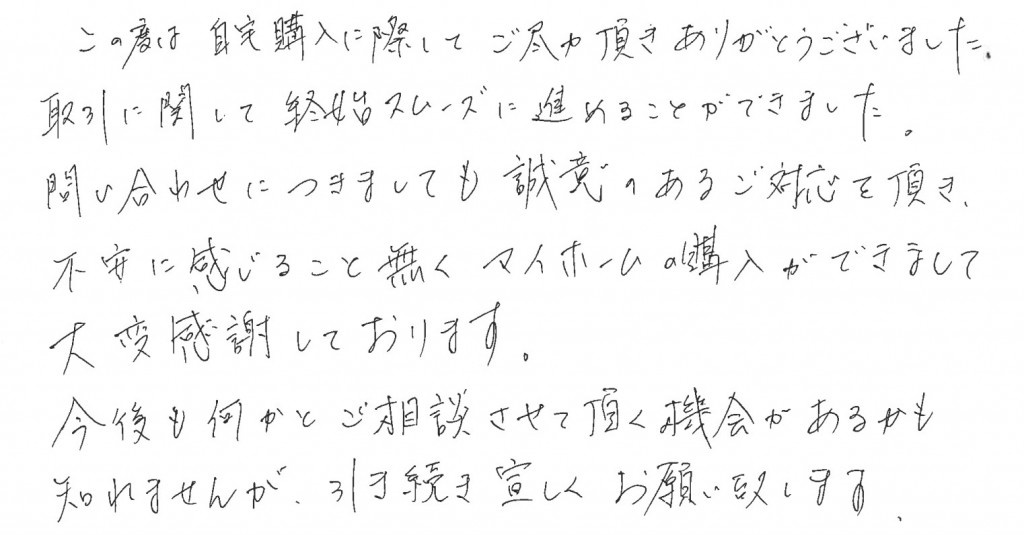 この度は自宅購入に際してご尽力頂きありがとうございました。
取引に関して終始スムーズに進めることができました。
問い合わせにつきましても誠意のあるご対応を頂き、
不安に感じること無くマイホームの購入ができまして
大変感謝しております。
今後も何かとご相談させて頂く機会があるかも
知れませんが、引き続き宜しくお願い致します。